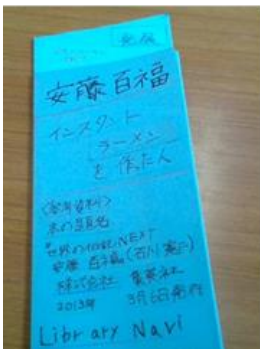 発展
安藤百福
インスタント
ラーメン
を作た人
〈参考資料〉
本の題名
世界の伝記NEXT
安藤百福(石川憲二)
株式会社 集英社
2013年 3月6日発行
Library Navi